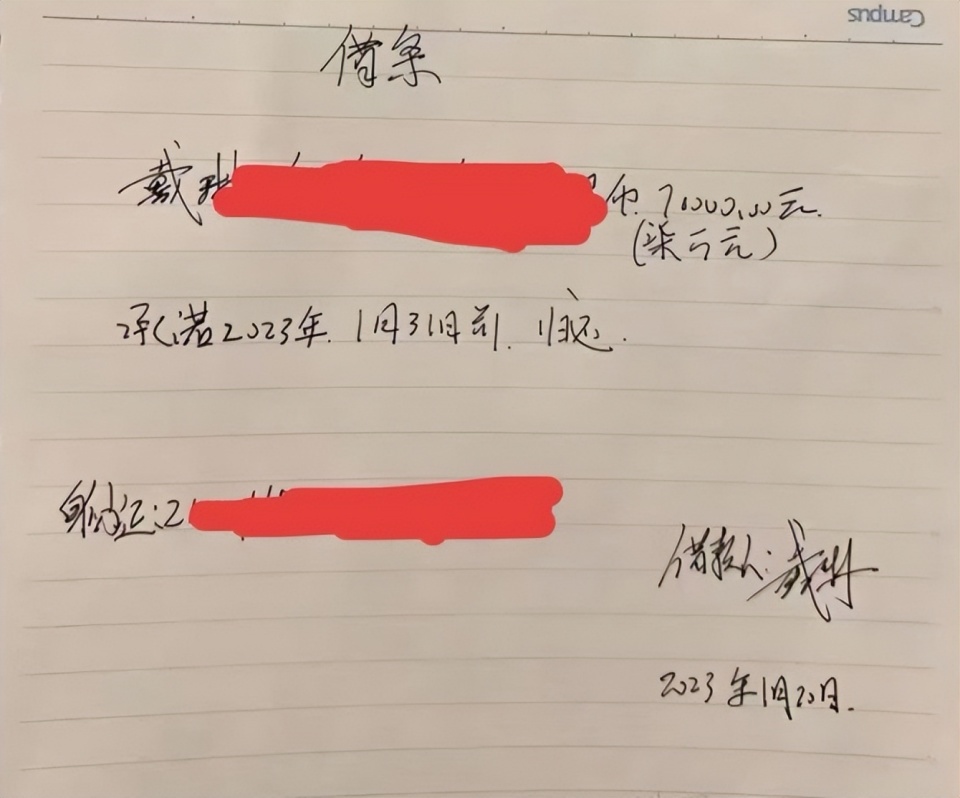 Campus
借条
戴琳 币.7,000.00元.
(柒 元)
承诺2023年.1月31日前.归还.
身份证:2
借款人:戴琳
2023年1月20日.